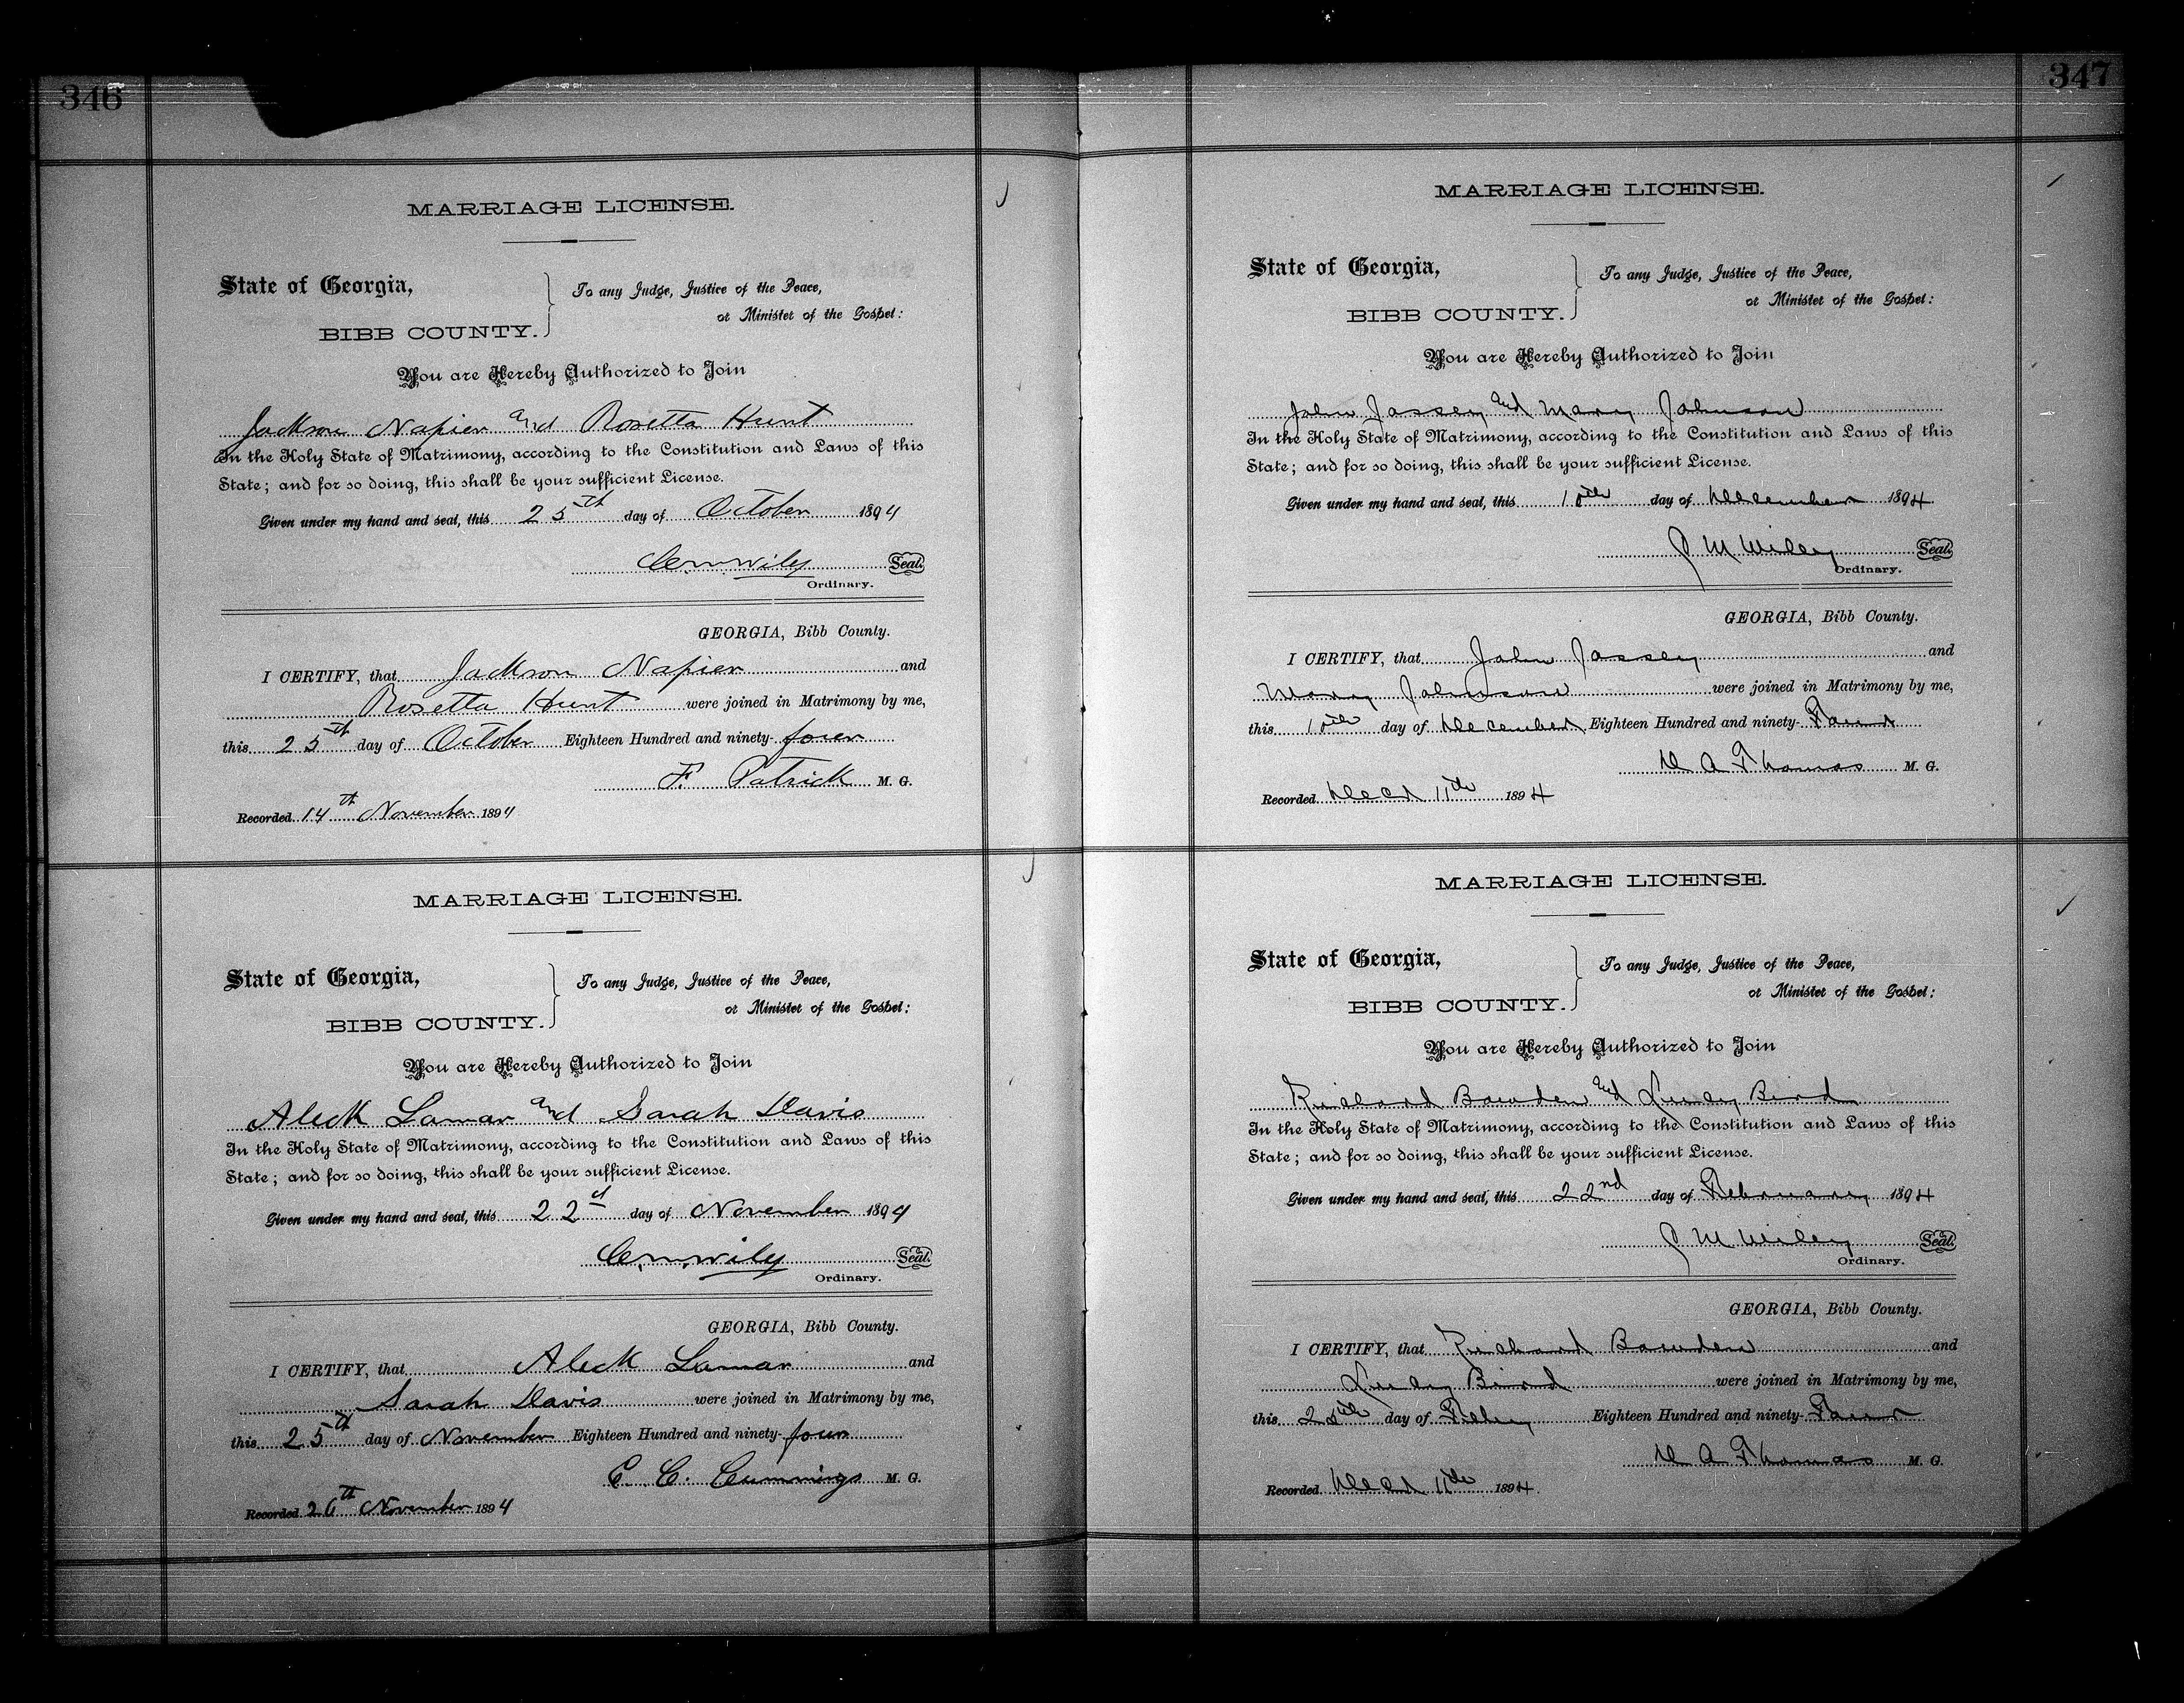 346
MARRIAGE LICENSE.
State of Georgia,
BIBB COUNTY.
To any Judge, Justice of the Peace,
or Minister of the Gospel:
You are Hereby Authorized to Join
Jackson Napier and Rosetta Hunt
In the Holy State of Matrimony, according to the Constitution and Laws of this
State; and for so doing, this shall be your sufficient License.
Given under my hand and seal, this 25th day of October 1894
C. M. Wiley Seal.
Ordinary.
GEORGIA, Bibb County.
I CERTIFY, that Jackson Napier and
Rosetta Hunt were joined in Matrimony by me,
this 25th day of October Eighteen Hundred and ninety-four
F. Patrick M. G.
Recorded 14th November 1894
MARRIAGE LICENSE.
State of Georgia,
BIBB COUNTY.
To any Judge, Justice of the Peace,
or Minister of the Gospel:
You are Hereby Authorized to Join
Aleck Lamar and Sarah Davis
In the Holy State of Matrimony, according to the Constitution and Laws of this
State; and for so doing, this shall be your sufficient License.
Given under my hand and seal, this 22d day of November 1894
C. M. Wiley Seal.
Ordinary.
GEORGIA, Bibb County.
I CERTIFY, that Aleck Lamar and
Sarah Davis were joined in Matrimony by me,
this 25th day of November Eighteen Hundred and ninety-four
C. C. Cummings M. G.
Recorded 26th November 1894
347
MARRIAGE LICENSE.
State of Georgia,
BIBB COUNTY.
To any Judge, Justice of the Peace,
or Minister of the Gospel:
You are Hereby Authorized to Join
John Jassey and Mary Johnson
In the Holy State of Matrimony, according to the Constitution and Laws of this
State; and for so doing, this shall be your sufficient License.
Given under my hand and seal, this 10th day of December 1894
C M Wiley Seal.
Ordinary.
GEORGIA, Bibb County.
I CERTIFY, that John Jassey and
Mary Johnson were joined in Matrimony by me,
this 10th day of December Eighteen Hundred and ninety-Four
W A Thomas M. G.
Recorded Decr 11th 1894
MARRIAGE LICENSE.
State of Georgia,
BIBB COUNTY.
To any Judge, Justice of the Peace,
or Minister of the Gospel:
You are Hereby Authorized to Join
Richard Bowden and Bird
In the Holy State of Matrimony, according to the Constitution and Laws of this
State; and for so doing, this shall be your sufficient License.
Given under my hand and seal, this 22nd day of February 1894
C M Wiley Seal.
Ordinary.
GEORGIA, Bibb County.
I CERTIFY, that Richard Bowden and
Bird were joined in Matrimony by me,
this day of Feby Eighteen Hundred and ninety-Four
W A Thomas M. G.
Recorded Decr 11th 1894